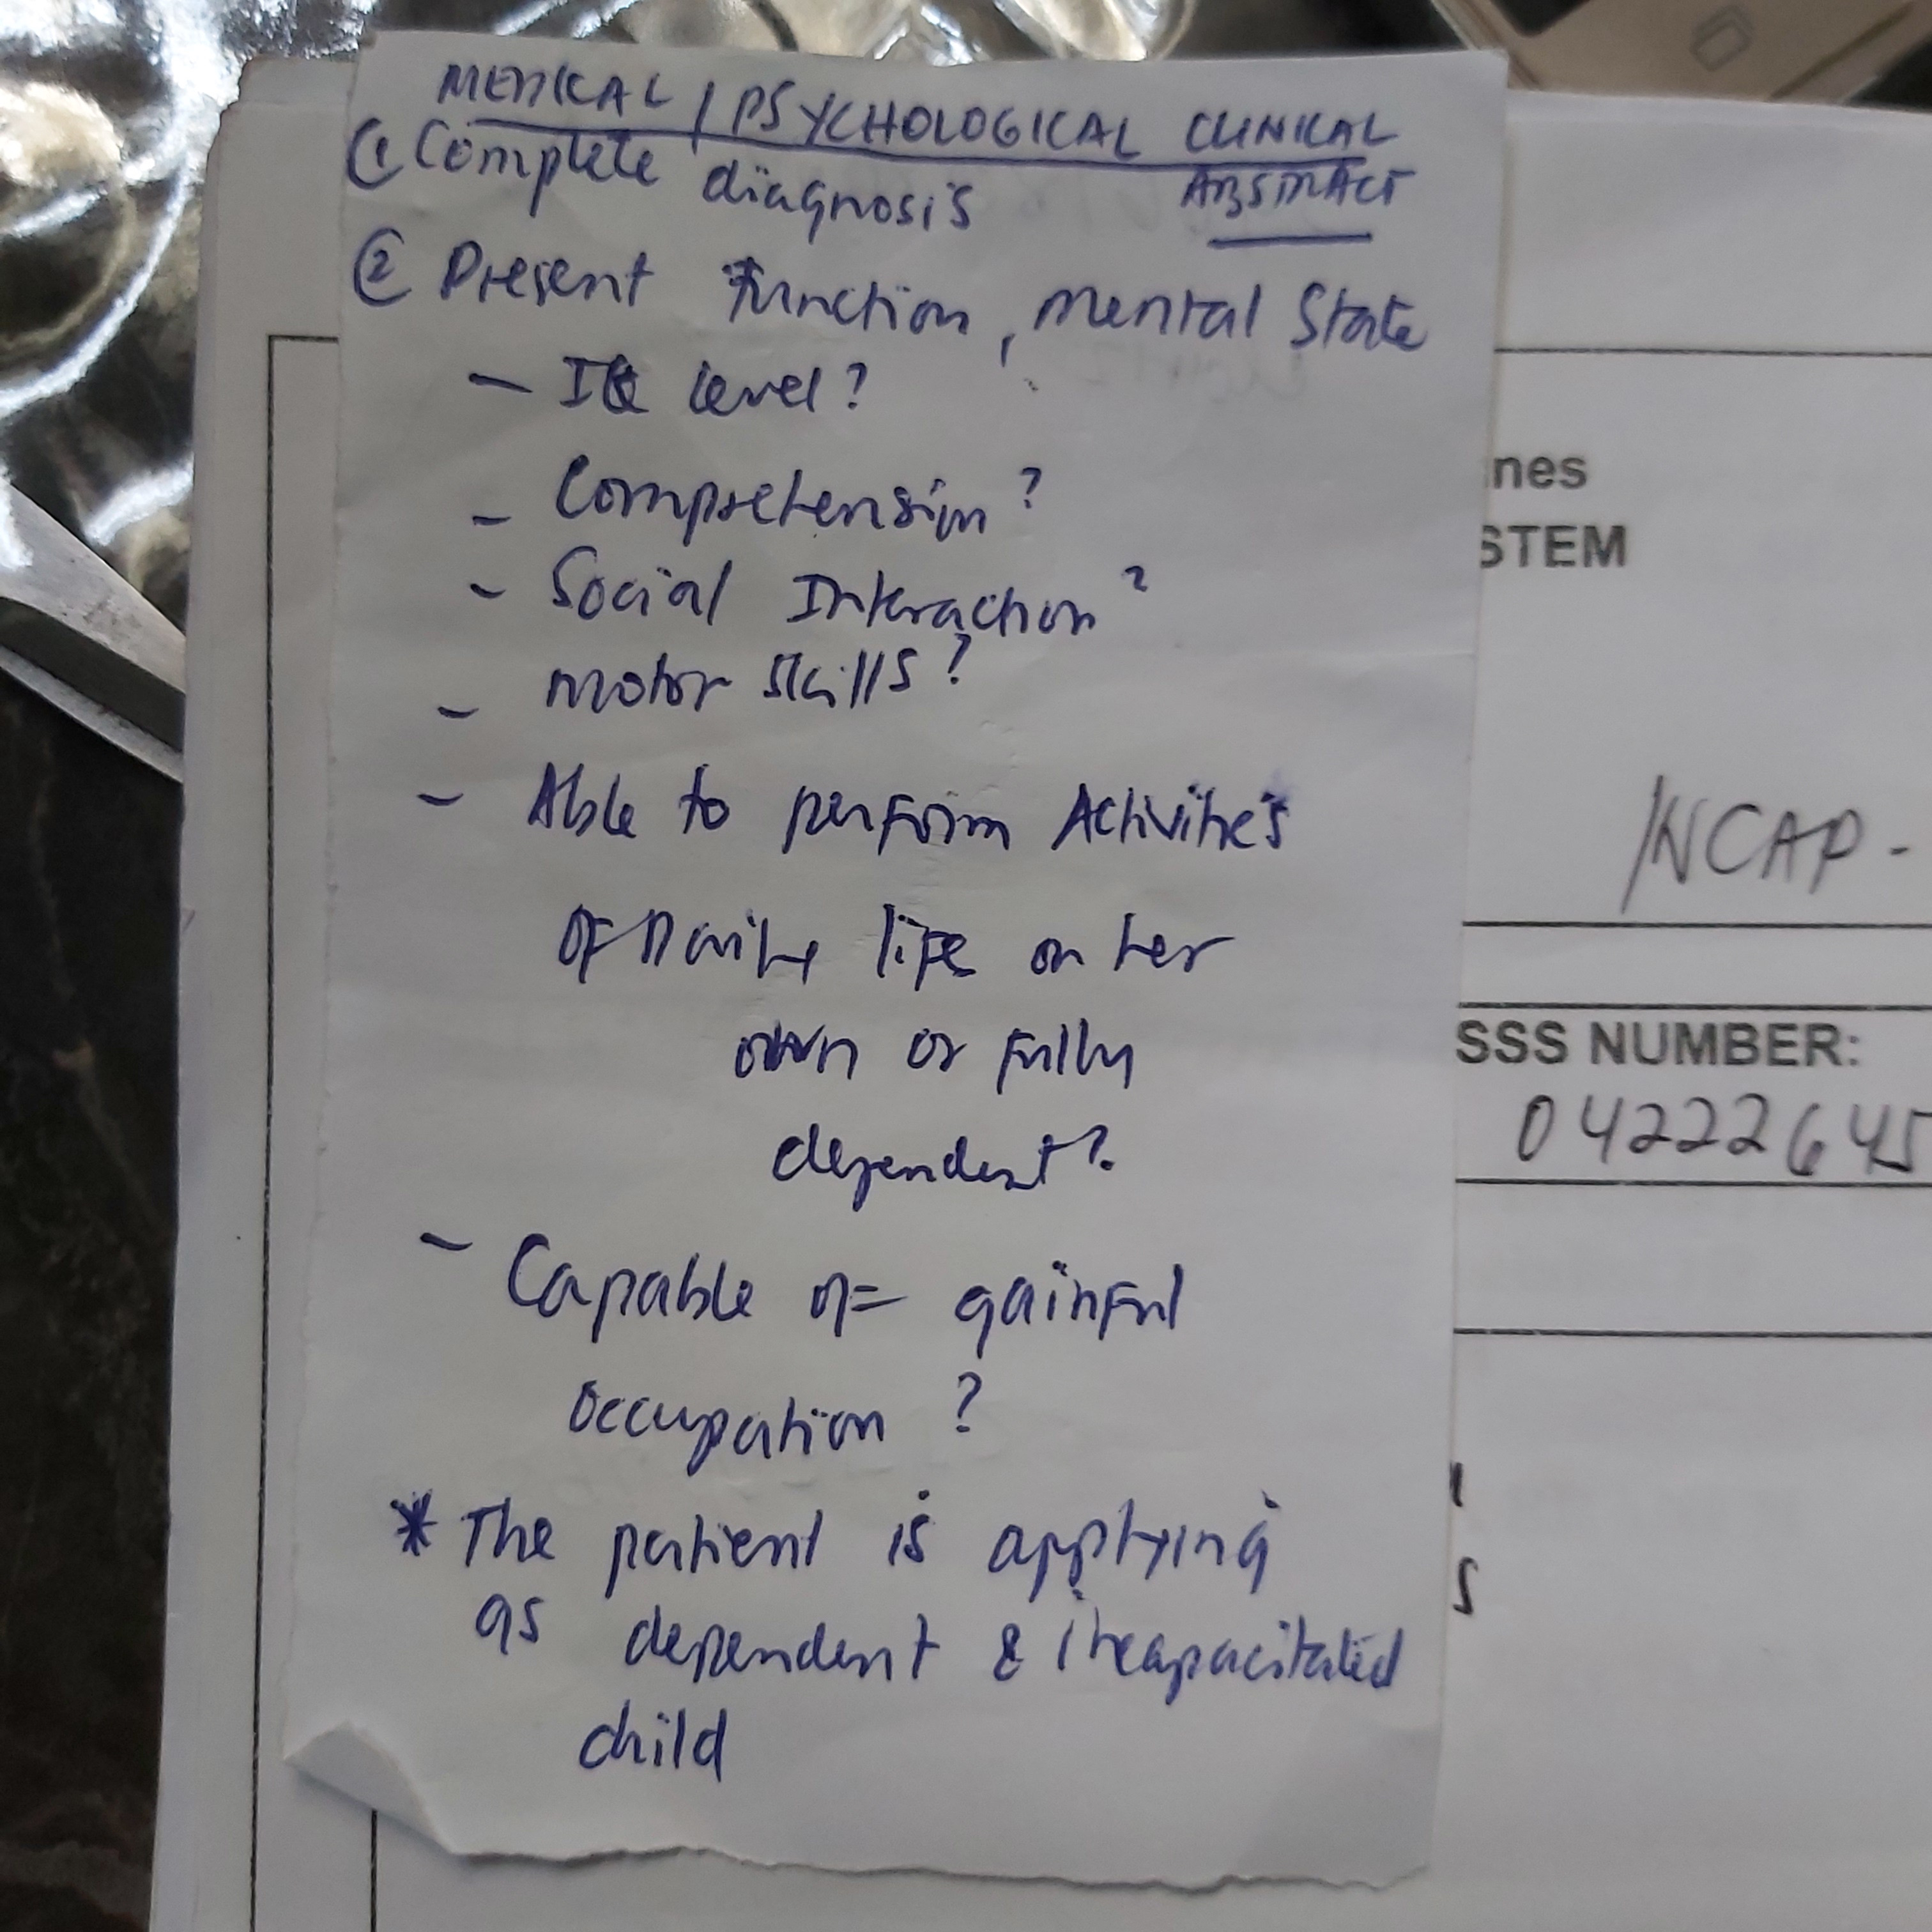 MEDICAL / PSYCHOLOGICAL CLINICAL
ABSTRACT
① Complete diagnosis
② Present Function, mental State
- IQ level?
- Comprehension?
- Social Interaction?
- motor skills?
- Able to perform Activities
of Daily life on her
own or fully
dependent?
- Capable of gainful
occupation ?
* The patient is applying
as dependent & incapacitated
child
nes
STEM
INCAP-
SSS NUMBER:
04222645